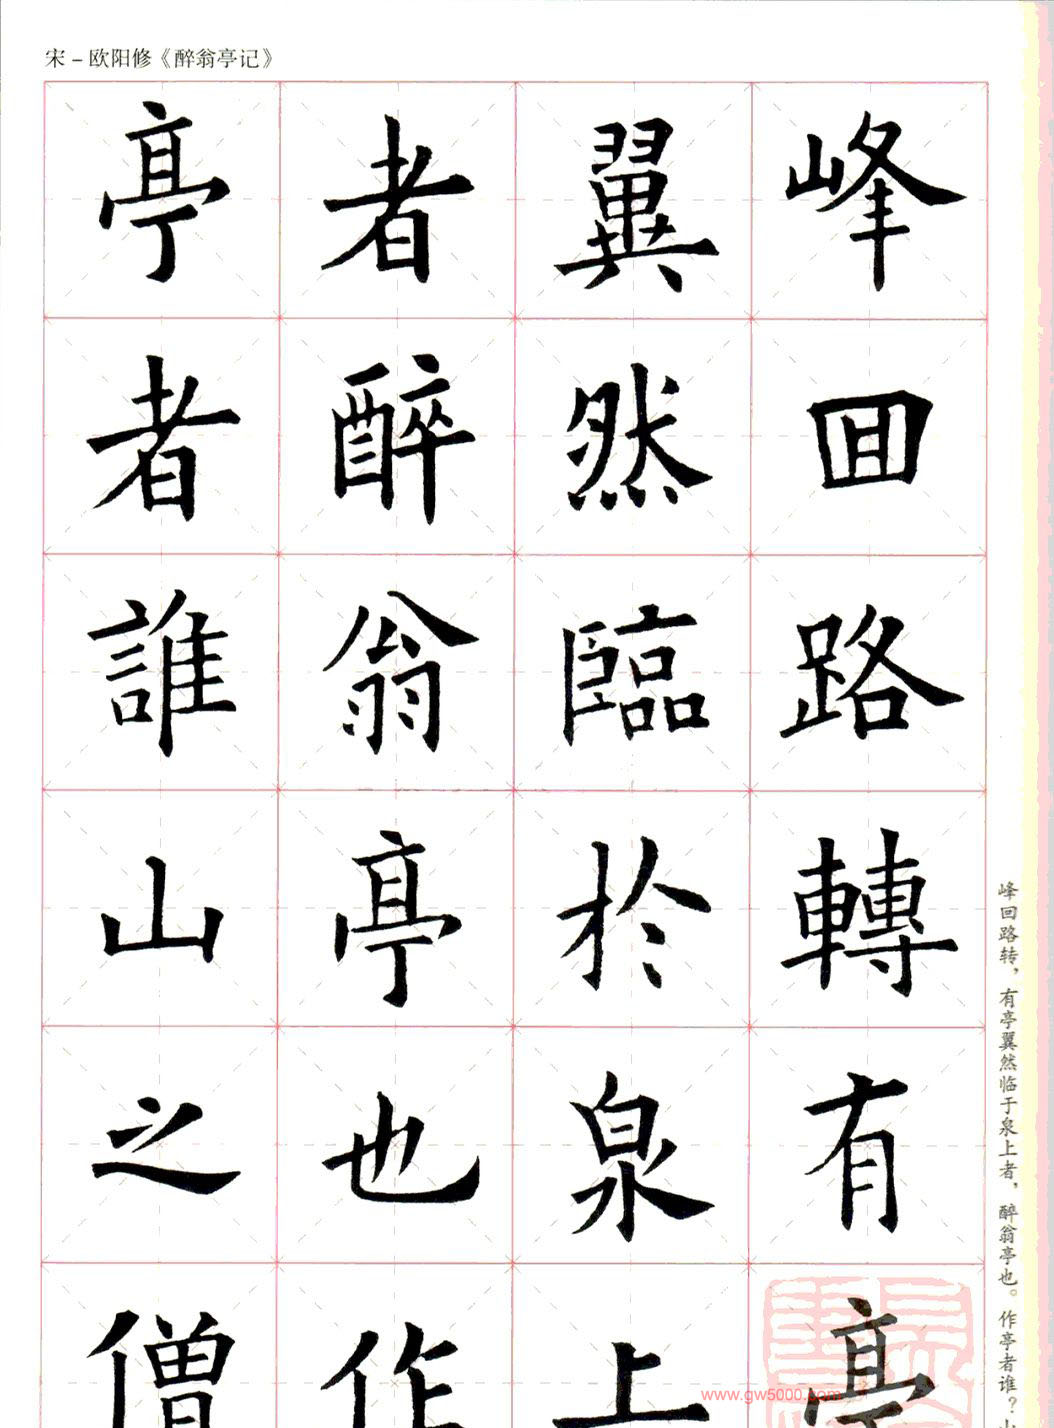 宋－欧阳修《醉翁亭记》
峰回路轉有亭
翼然臨於泉上
者醉翁亭也作
亭者誰山之僧
峰回路转，有亭翼然临于泉上者，醉翁亭也。作亭者谁？山
www.gw5000.com